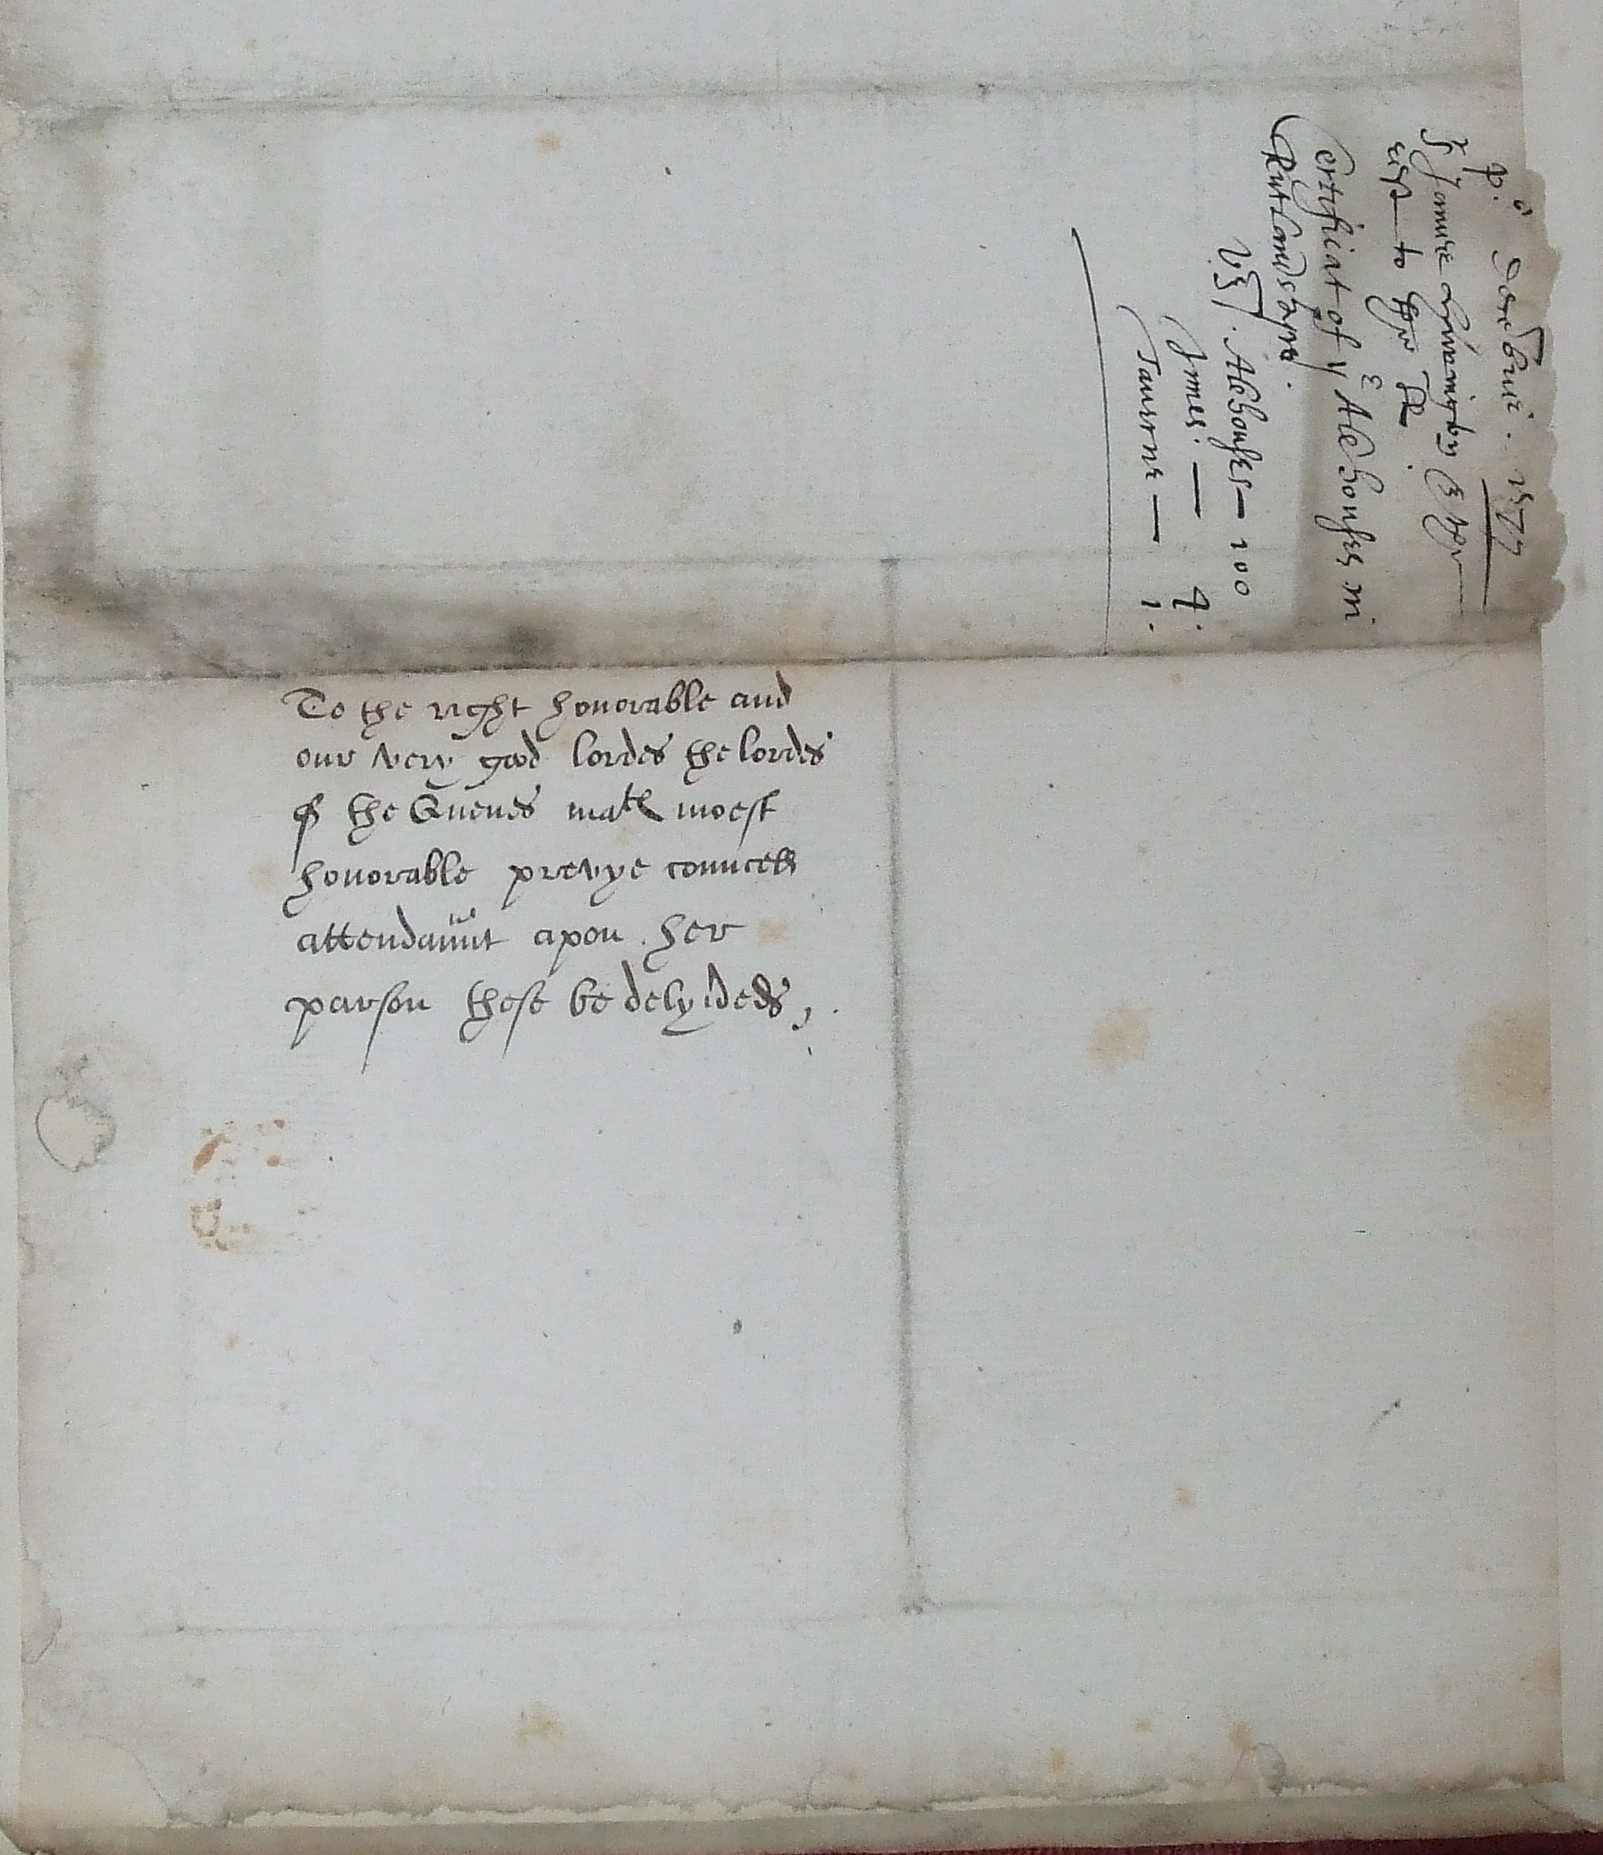 To the right honorable and
our very good lordes the lordes
of the Quenes matie moest
honorable prevye councell
attendaunt apon her
parson these be delyvered,
1577
Sr James Haringto &
to the
Certificat of ye Alehouses in
Rutlandshyre.
vzt. Alehouses — 100
Innes: — 4.
Taverne — 1.